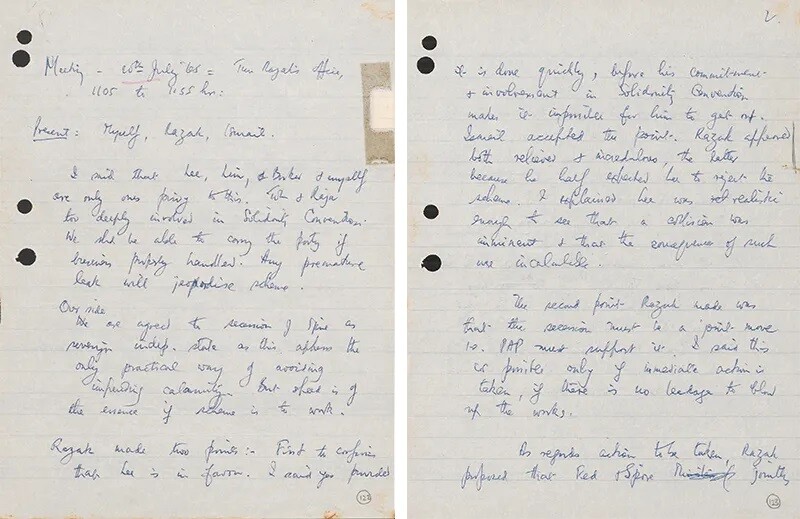 Meeting - 20th July '65 = Tun Razak's office,
1105 to 1155 hrs:
Present: Myself, Razak, Ismail.
I said that Lee, Lim, & Barker & myself
are only ones privy to this. Toh & Raja
too deeply involved in Solidarity Convention.
We shd be able to carry the party if
business properly handled. Any premature
leak will jeopardise scheme.
Our side
We are agreed to secession of S'pore as
sovereign indep. state as this affords the
only practical way of avoiding
impending calamity. But speed is of
the essence if scheme is to work.
Razak made two points:- First to confirm
that Lee is in favour. I said yes provided
122
2
it is done quickly, before his commitment
& involvement in Solidarity Convention
makes it impossible for him to get out.
Ismail accepted the point. Razak appeared
both relieved & incredulous, the latter
because he half expected Lee to reject the
scheme. I explained Lee was realistic
enough to see that a collision was
imminent & that the consequences of such
were incalculable.
The second point Razak made was
that the secession must be a joint move
ie. PAP must support it. I said this
is possible only if immediate action is
taken, if there is no leakage to blow
up the works.
As regards action to be taken, Razak
proposed that Fed & S'pore jointly
123